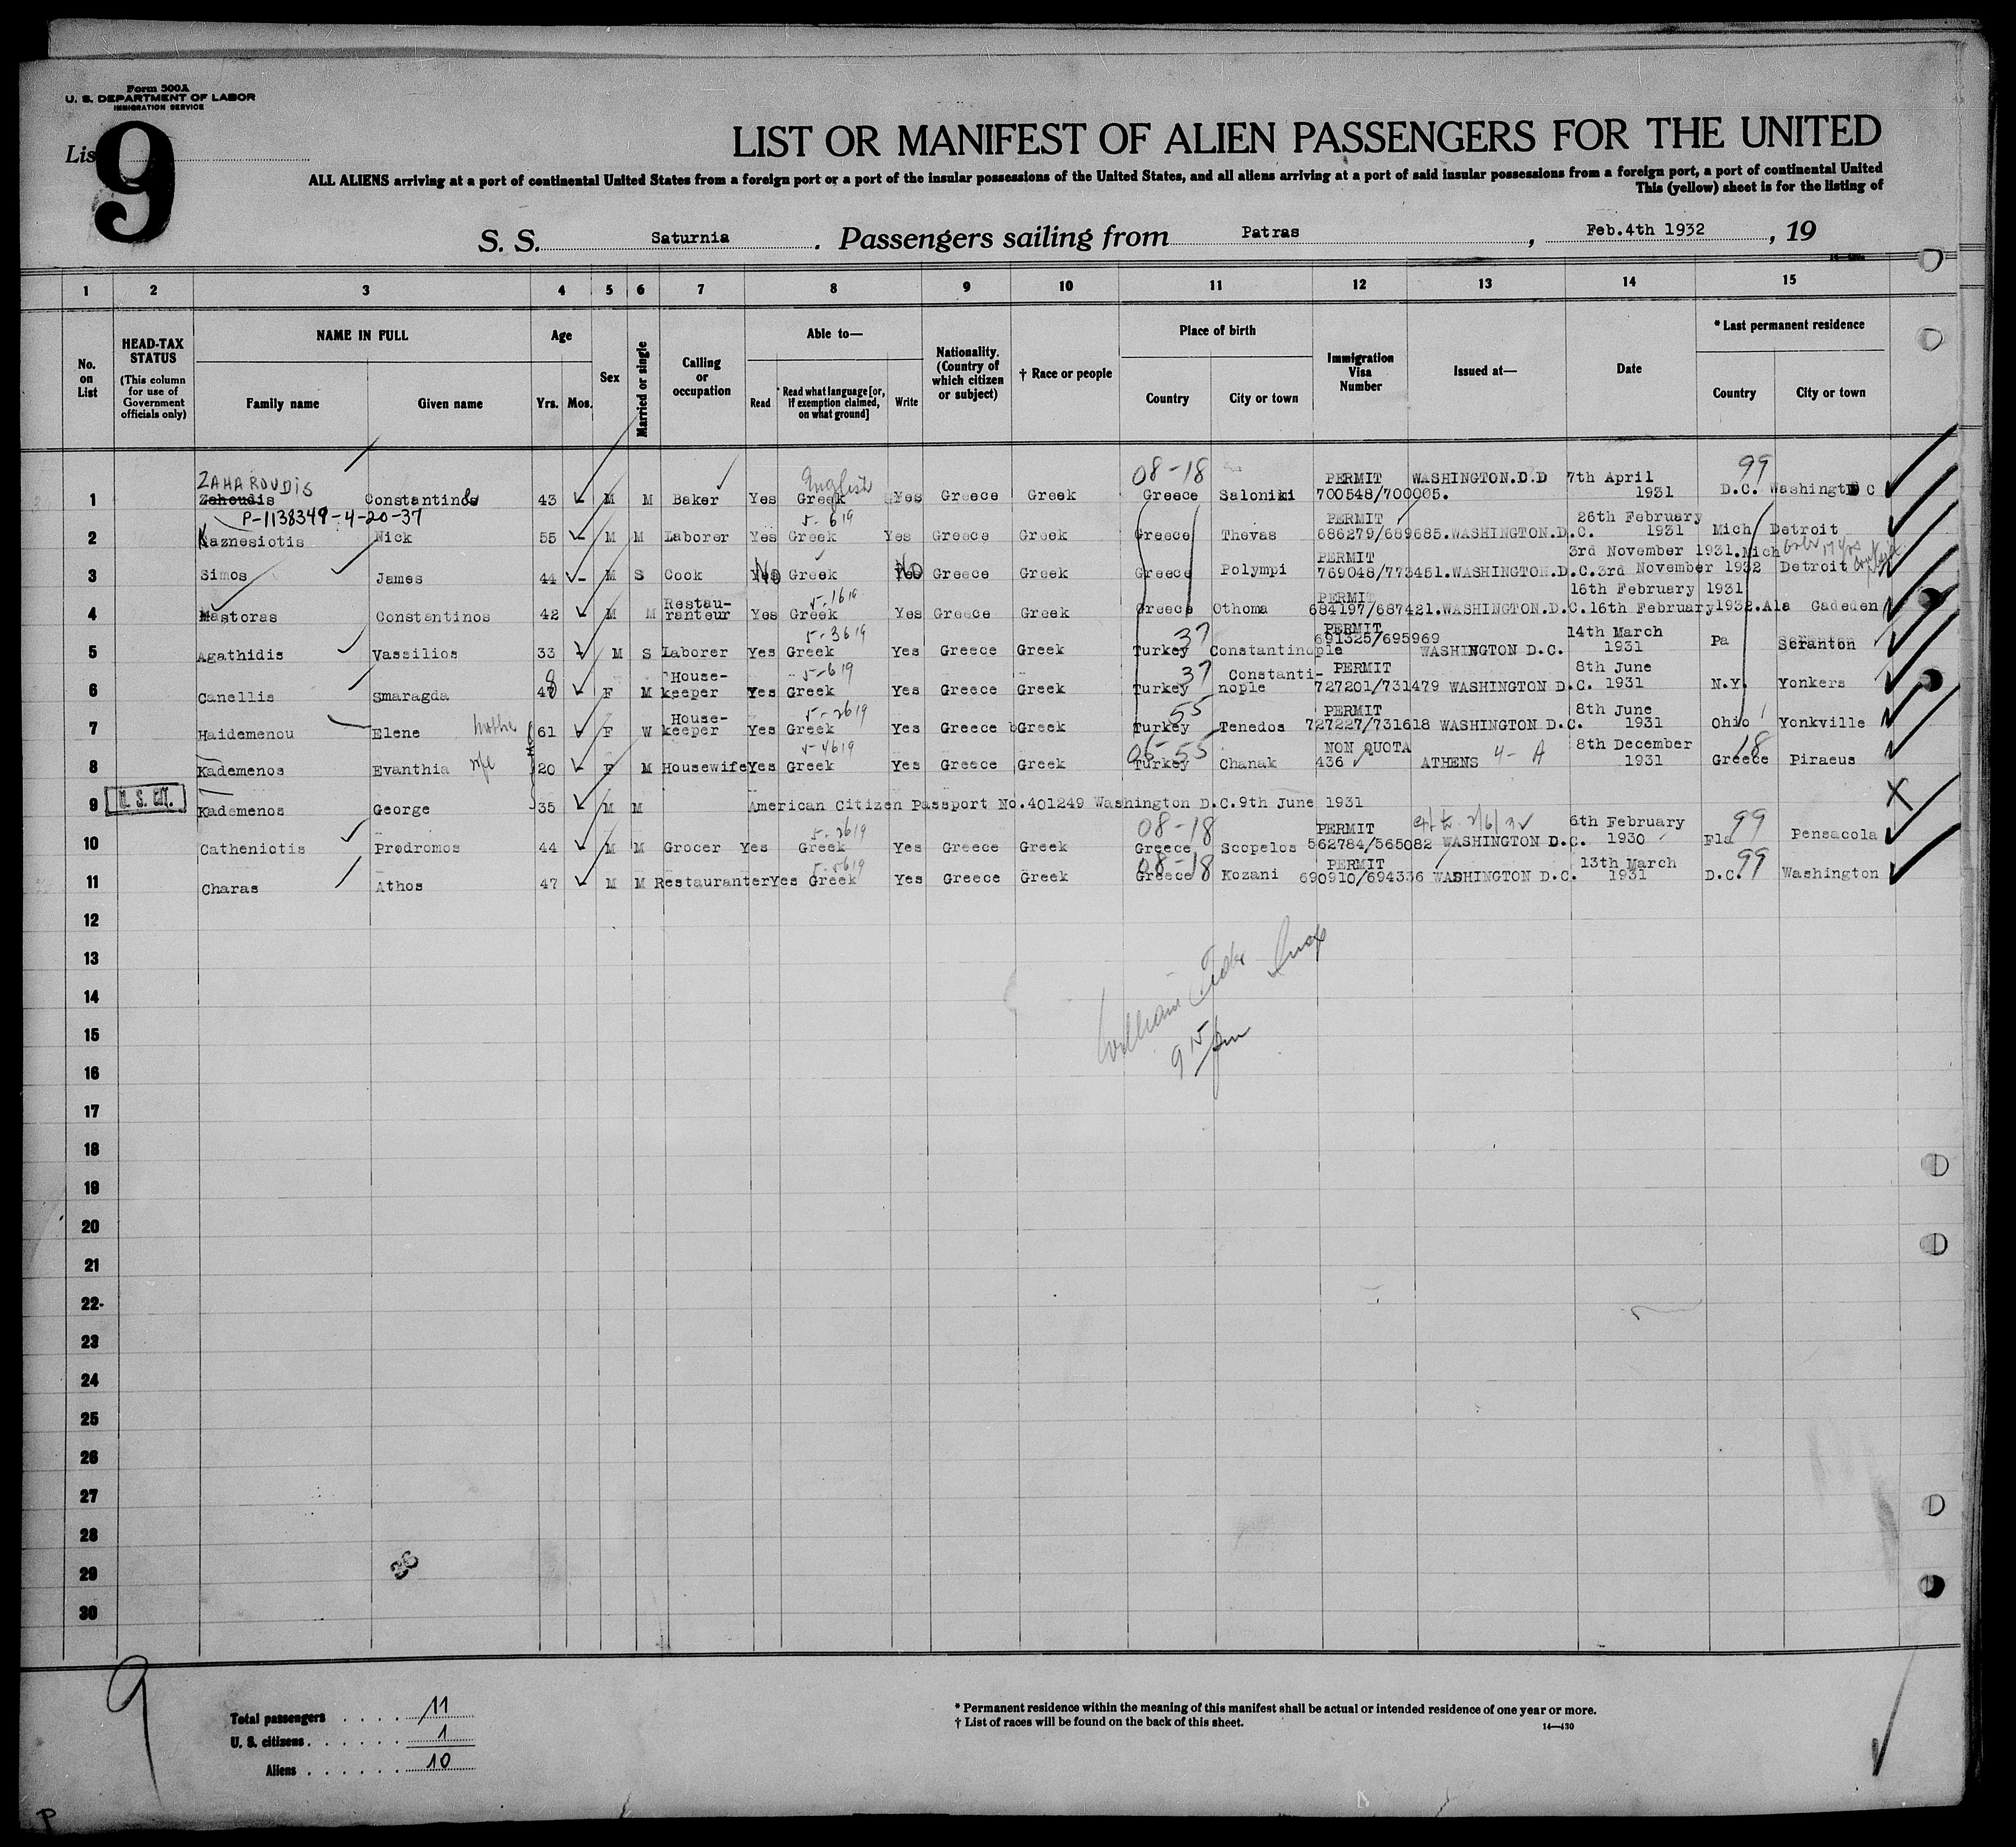 Form 500A
U. S. DEPARTMENT OF LABOR
IMMIGRATION SERVICE
List 9
LIST OR MANIFEST OF ALIEN PASSENGERS FOR THE UNITED
ALL ALIENS arriving at a port of continental United States from a foreign port or a port of the insular possessions of the United States, and all aliens arriving at a port of said insular possessions from a foreign port, a port of continental United
This (yellow) sheet is for the listing of
S. S. Saturnia. Passengers sailing from Patras, Feb.4th 1932, 19
1 2 3 4 5 6 7 8 9 10 11 12 13 14 15
No. on List
HEAD-TAX STATUS (This column for use of Government officials only)
NAME IN FULL
Family name Given name
Age
Yrs. Mos.
Sex
Married or single
Calling or occupation
Able to—
Read
Read what language [or, if exemption claimed, on what ground]
Write
Nationality. (Country of which citizen or subject)
† Race or people
Place of birth
Country City or town
Immigration Visa Number
Issued at—
Date
* Last permanent residence
Country City or town
ZAHAROUDIS English 08-18 PERMIT WASHINGTON.D.D 7th April 99
1 Zahoudis Constantinos 43 M M Baker Yes Greek Yes Greece Greek Greece Saloniki 700548/700005. 1931 D.C. Washingt D C
P-1138349-4-20-37 5-619 PERMIT 26th February
2 Kaznesiotis Nick 55 M M Laborer Yes Greek Yes Greece Greek Greece Thevas 686279/689685.WASHINGTON.D.C. 1931 Mich Detroit
PERMIT 3rd November 1931.Mich
3 Simos James 44 M S Cook Yes No Greek Yes No Greece Greek Greece Polympi 769048/773451.WASHINGTON.D.C.3rd November 1932 Detroit
5-1619 PERMIT 16th February 1931
4 Mastoras Constantinos 42 M M Restau-ranteur Yes Greek Yes Greece Greek Greece Othoma 684197/687421.WASHINGTON.D.C.16th February 1932.Ala Gadeden
5-3619 37 PERMIT 14th March
5 Agathidis Vassilios 33 M S Laborer Yes Greek Yes Greece Greek Turkey Constantinople 691325/695969 WASHINGTON D.C. 1931 Pa Scranton
8 5-619 37 PERMIT 8th June
6 Canellis Smaragda 47 F M House-keeper Yes Greek Yes Greece Greek Turkey Constanti-nople 727201/731479 WASHINGTON D.C. 1931 N.Y. Yonkers
5-2619 55 PERMIT 8th June
7 Haidemenou Elene mother 61 F W House-keeper Yes Greek Yes Greece Greek Turkey Tenedos 727227/731618 WASHINGTON D.C. 1931 Ohio Yonkville
5-4619 06-55 NON QUOTA 8th December 18
8 Kademenos Evanthia wife 20 F M Housewife Yes Greek Yes Greece Greek Turkey Chanak 436 ATHENS 4- A 1931 Greece Piraeus
9 U. S. CIT. Kademenos George 35 M M American Citizen Passport No.401249 Washington D.C.9th June 1931
5-2619 08-18 PERMIT 6th February 99
10 Catheniotis Prodromos 44 M M Grocer Yes Greek Yes Greece Greek Greece Scopelos 562784/565082 WASHINGTON D.C. 1930 Fla Pensacola
5-5619 08-18 PERMIT 13th March 99
11 Charas Athos 47 M M Restauranter Yes Greek Yes Greece Greek Greece Kozani 690910/694336 WASHINGTON D.C. 1931 D.C. Washington
12
13
14
William
15
9 15 pm
16
17
18
19
20
21
22
23
24
25
26
27
28
29
30
9
Total passengers . . . . 11
U. S. citizens . . . . . . 1
Aliens . . . . . . 10
* Permanent residence within the meaning of this manifest shall be actual or intended residence of one year or more.
† List of races will be found on the back of this sheet.
14—430
P